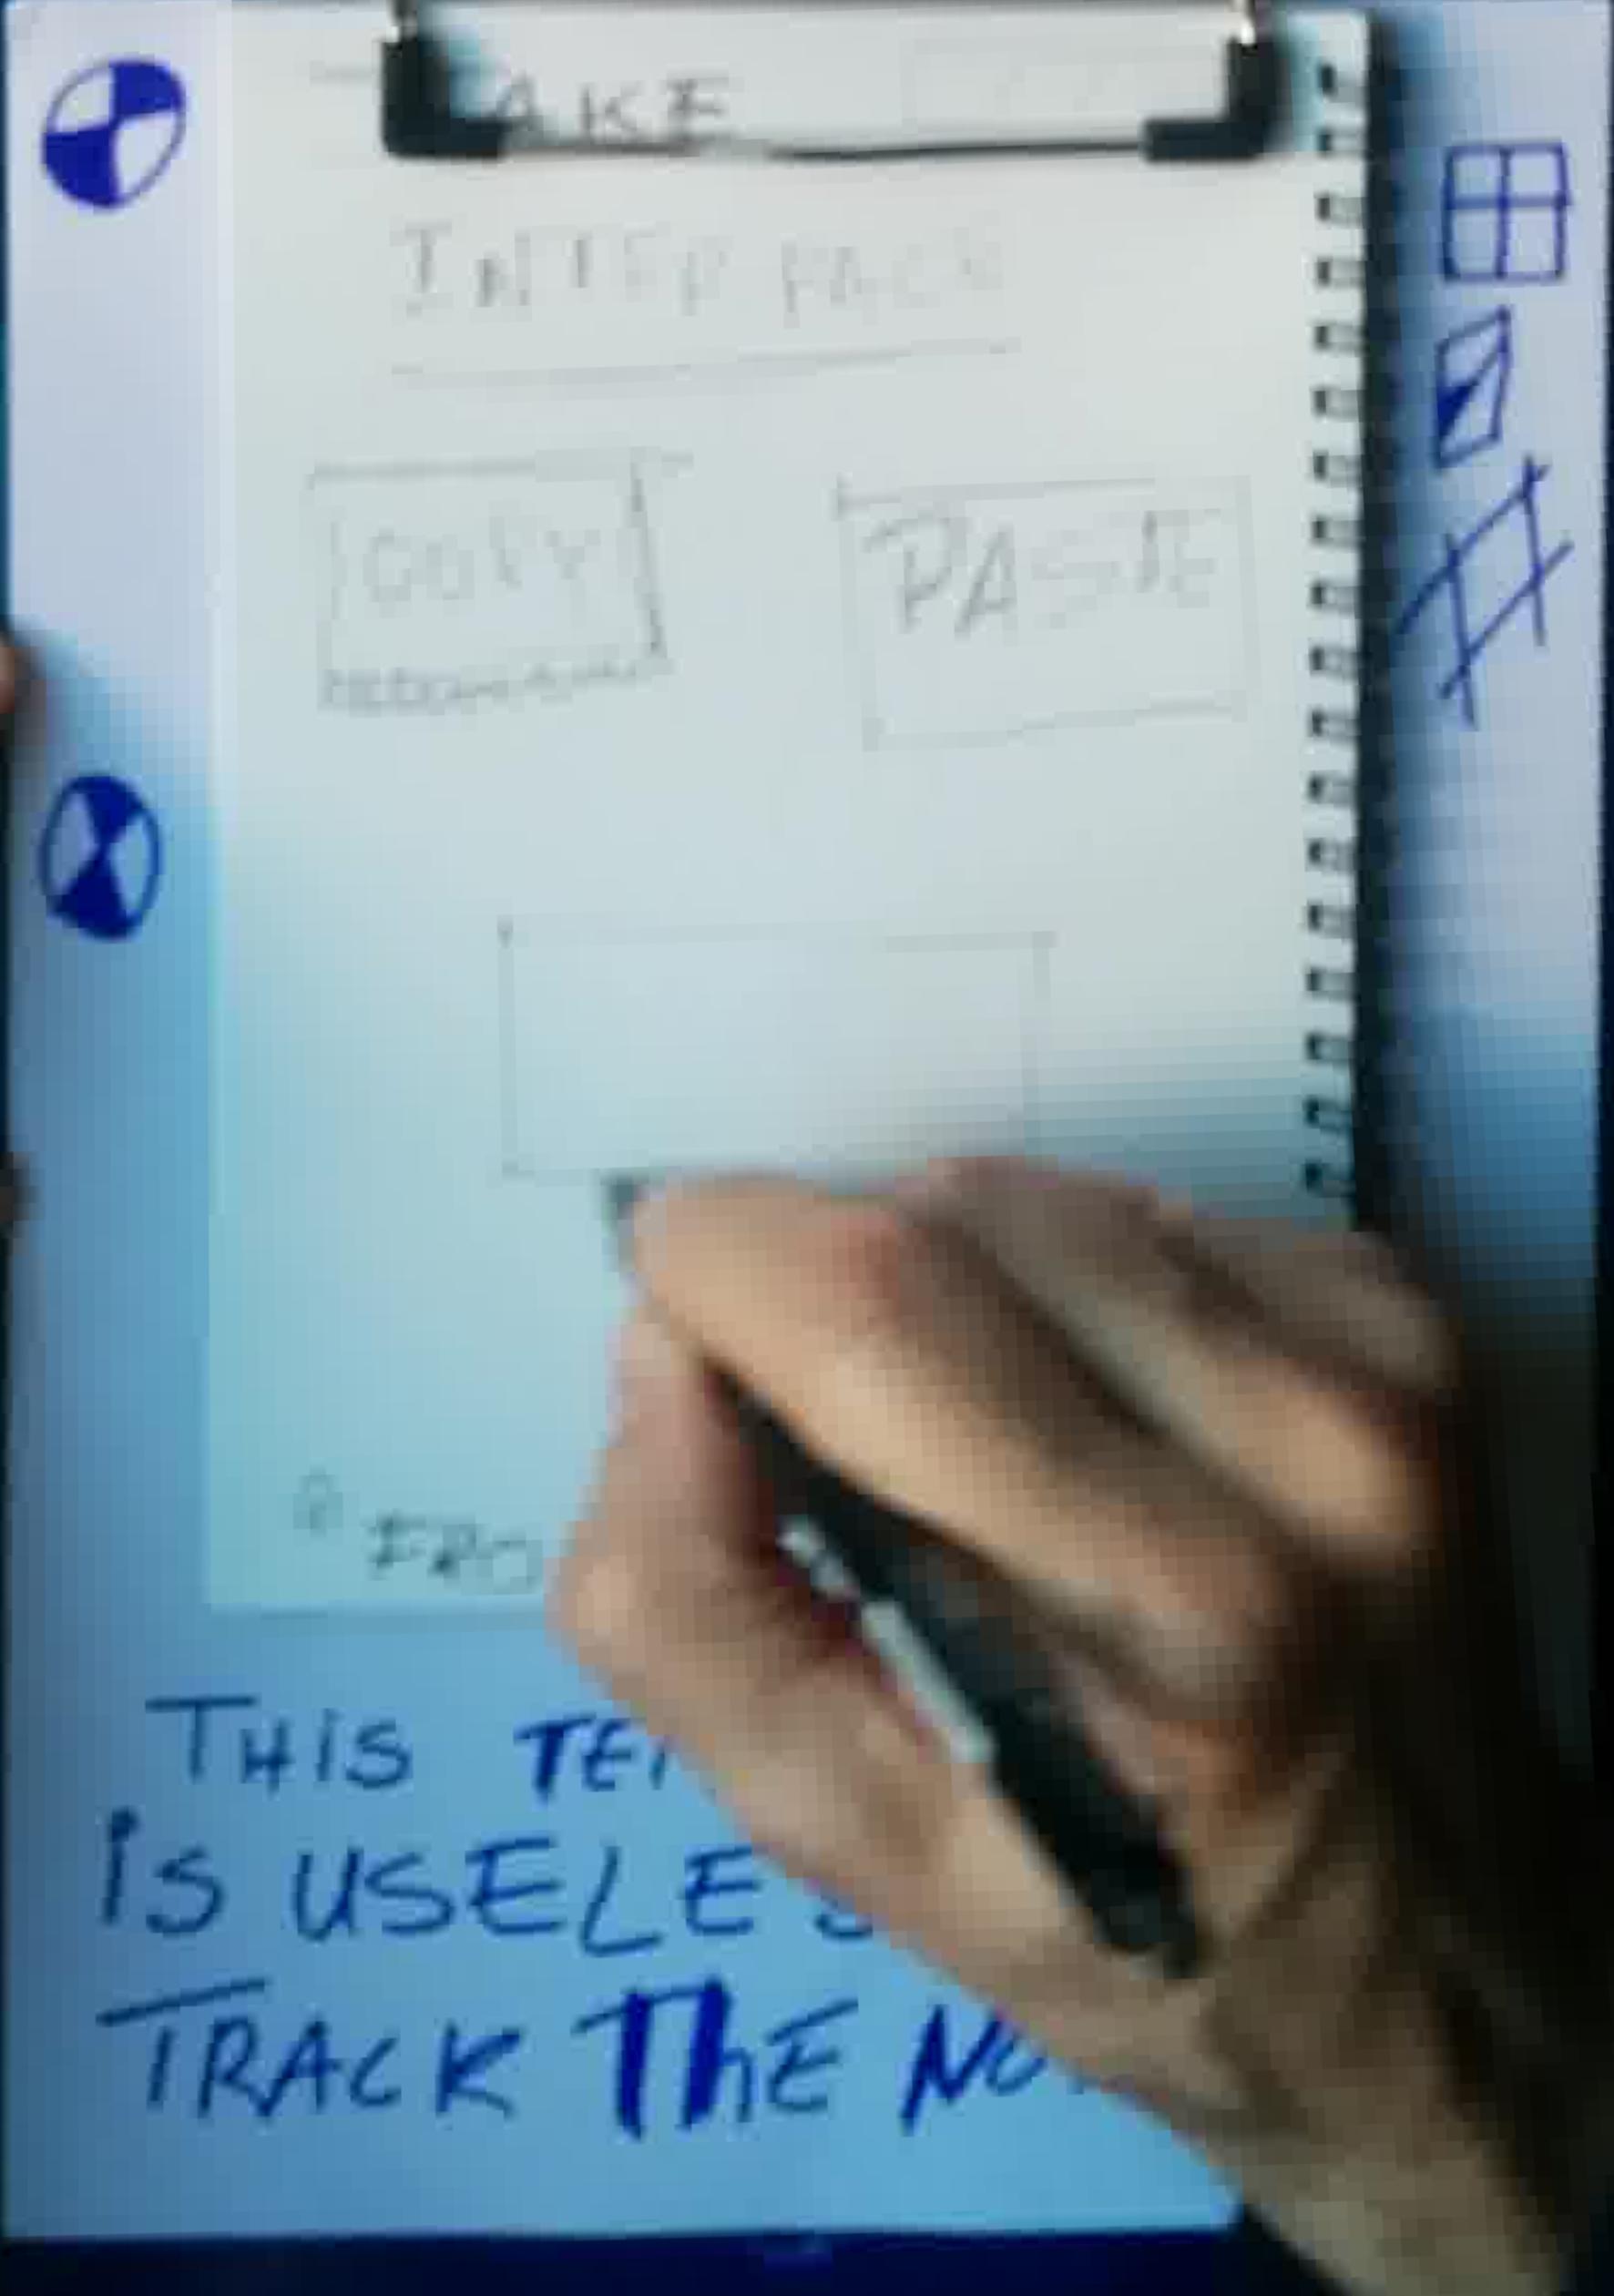 AKE
INTERFACE
COPY PASTE
THiS
iS USELE
TRACK ThE